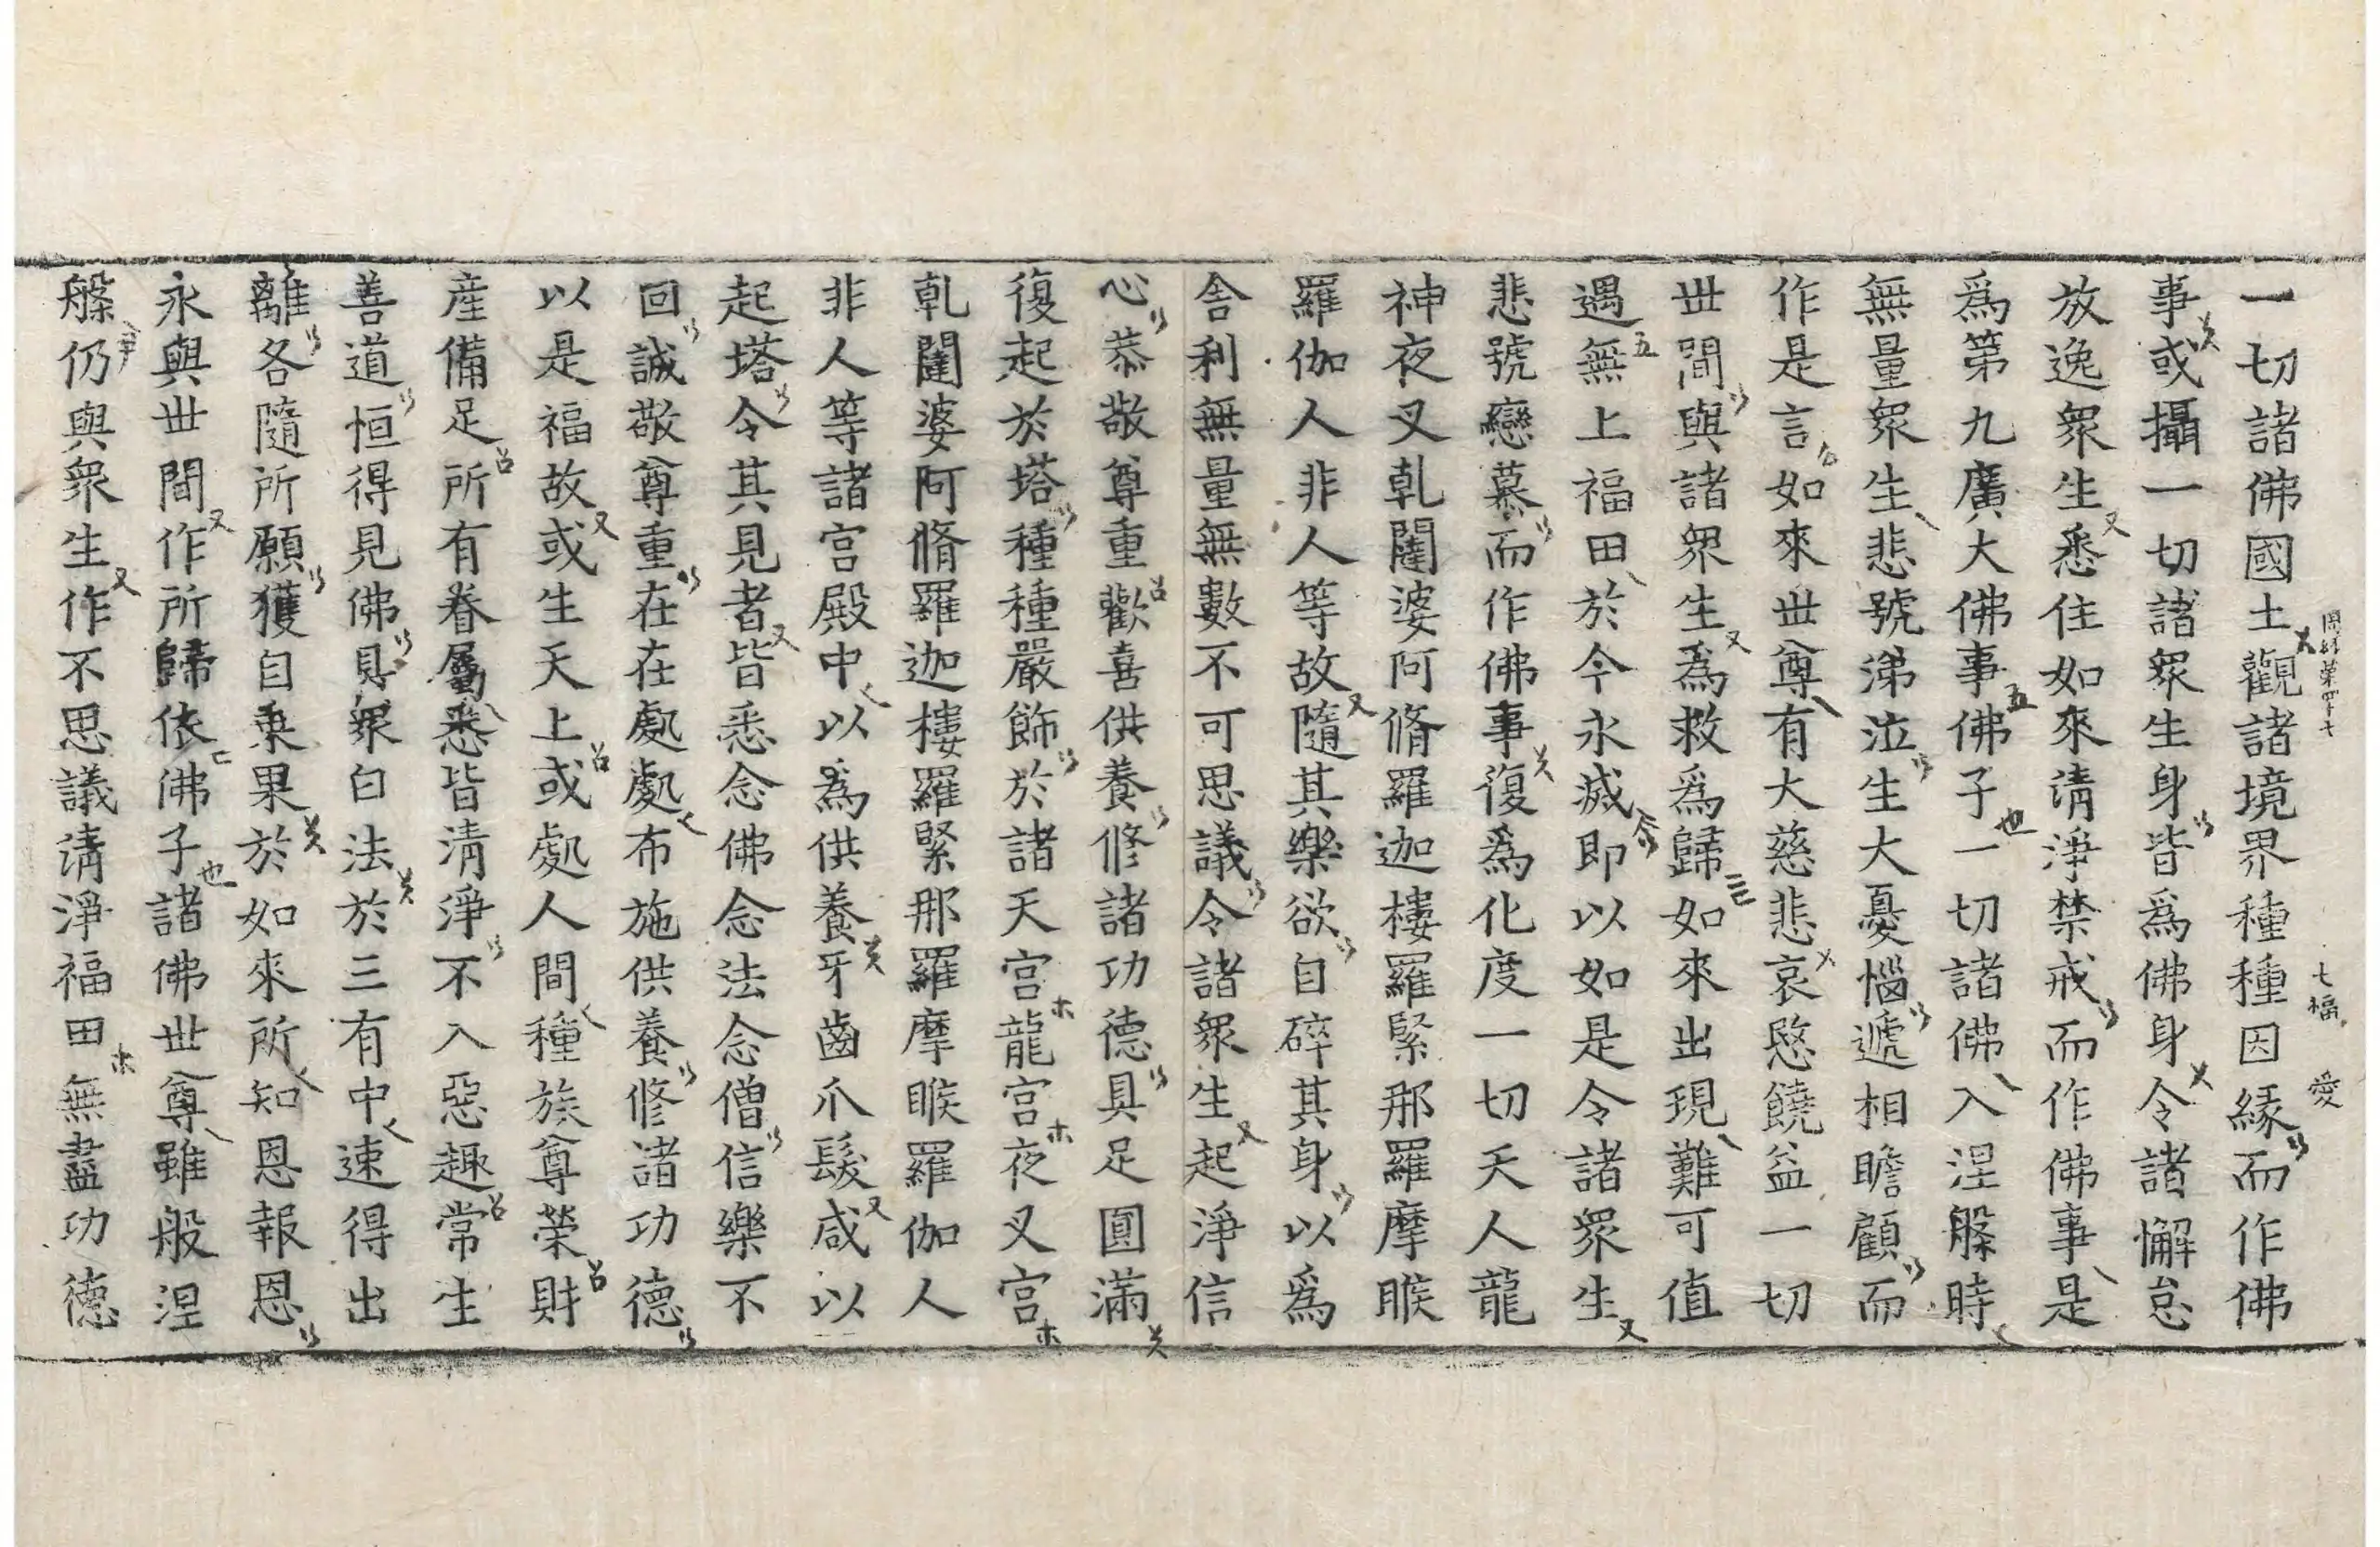 一切諸佛國土觀諸境界種種因緣而作佛
事或攝一切諸眾生身皆爲佛身令諸懈怠
放逸眾生悉住如來清淨禁戒而作佛事是
爲第九廣大佛事佛子一切諸佛入涅槃時
無量眾生悲號涕泣生大憂惱遞相瞻顧而
作是言如來世尊有大慈悲哀愍饒益一切
世間與諸眾生爲救爲歸如來出現難可值
遇無上福田於今永滅即以如是令諸眾生
悲號戀慕而作佛事復爲化度一切天人龍
神夜叉乹闥婆阿脩羅迦樓羅緊那羅摩睺
羅伽人非人等故隨其樂欲自碎其身以爲
舍利無量無數不可思議令諸眾生起淨信
心恭敬尊重歡喜供養修諸功德具足圓滿
復起於塔種種嚴飾於諸天宮龍宮夜叉宮
乹闥婆阿脩羅迦樓羅緊那羅摩睺羅伽人
非人等諸宮殿中以爲供養牙齒爪髮咸以
起塔令其見者皆悉念佛念法念僧信樂不
回誠敬尊重在在處處布施供養修諸功德
以是福故或生天上或處人間種族尊榮財
產備足所有眷屬悉皆清淨不入惡趣常生
善道恒得見佛具眾白法於三有中速得出
離各隨所願獲自乘果於如來所知恩報恩
永與世間作所歸依佛子諸佛世尊雖般涅
槃仍與眾生作不思議清淨福田無盡功德